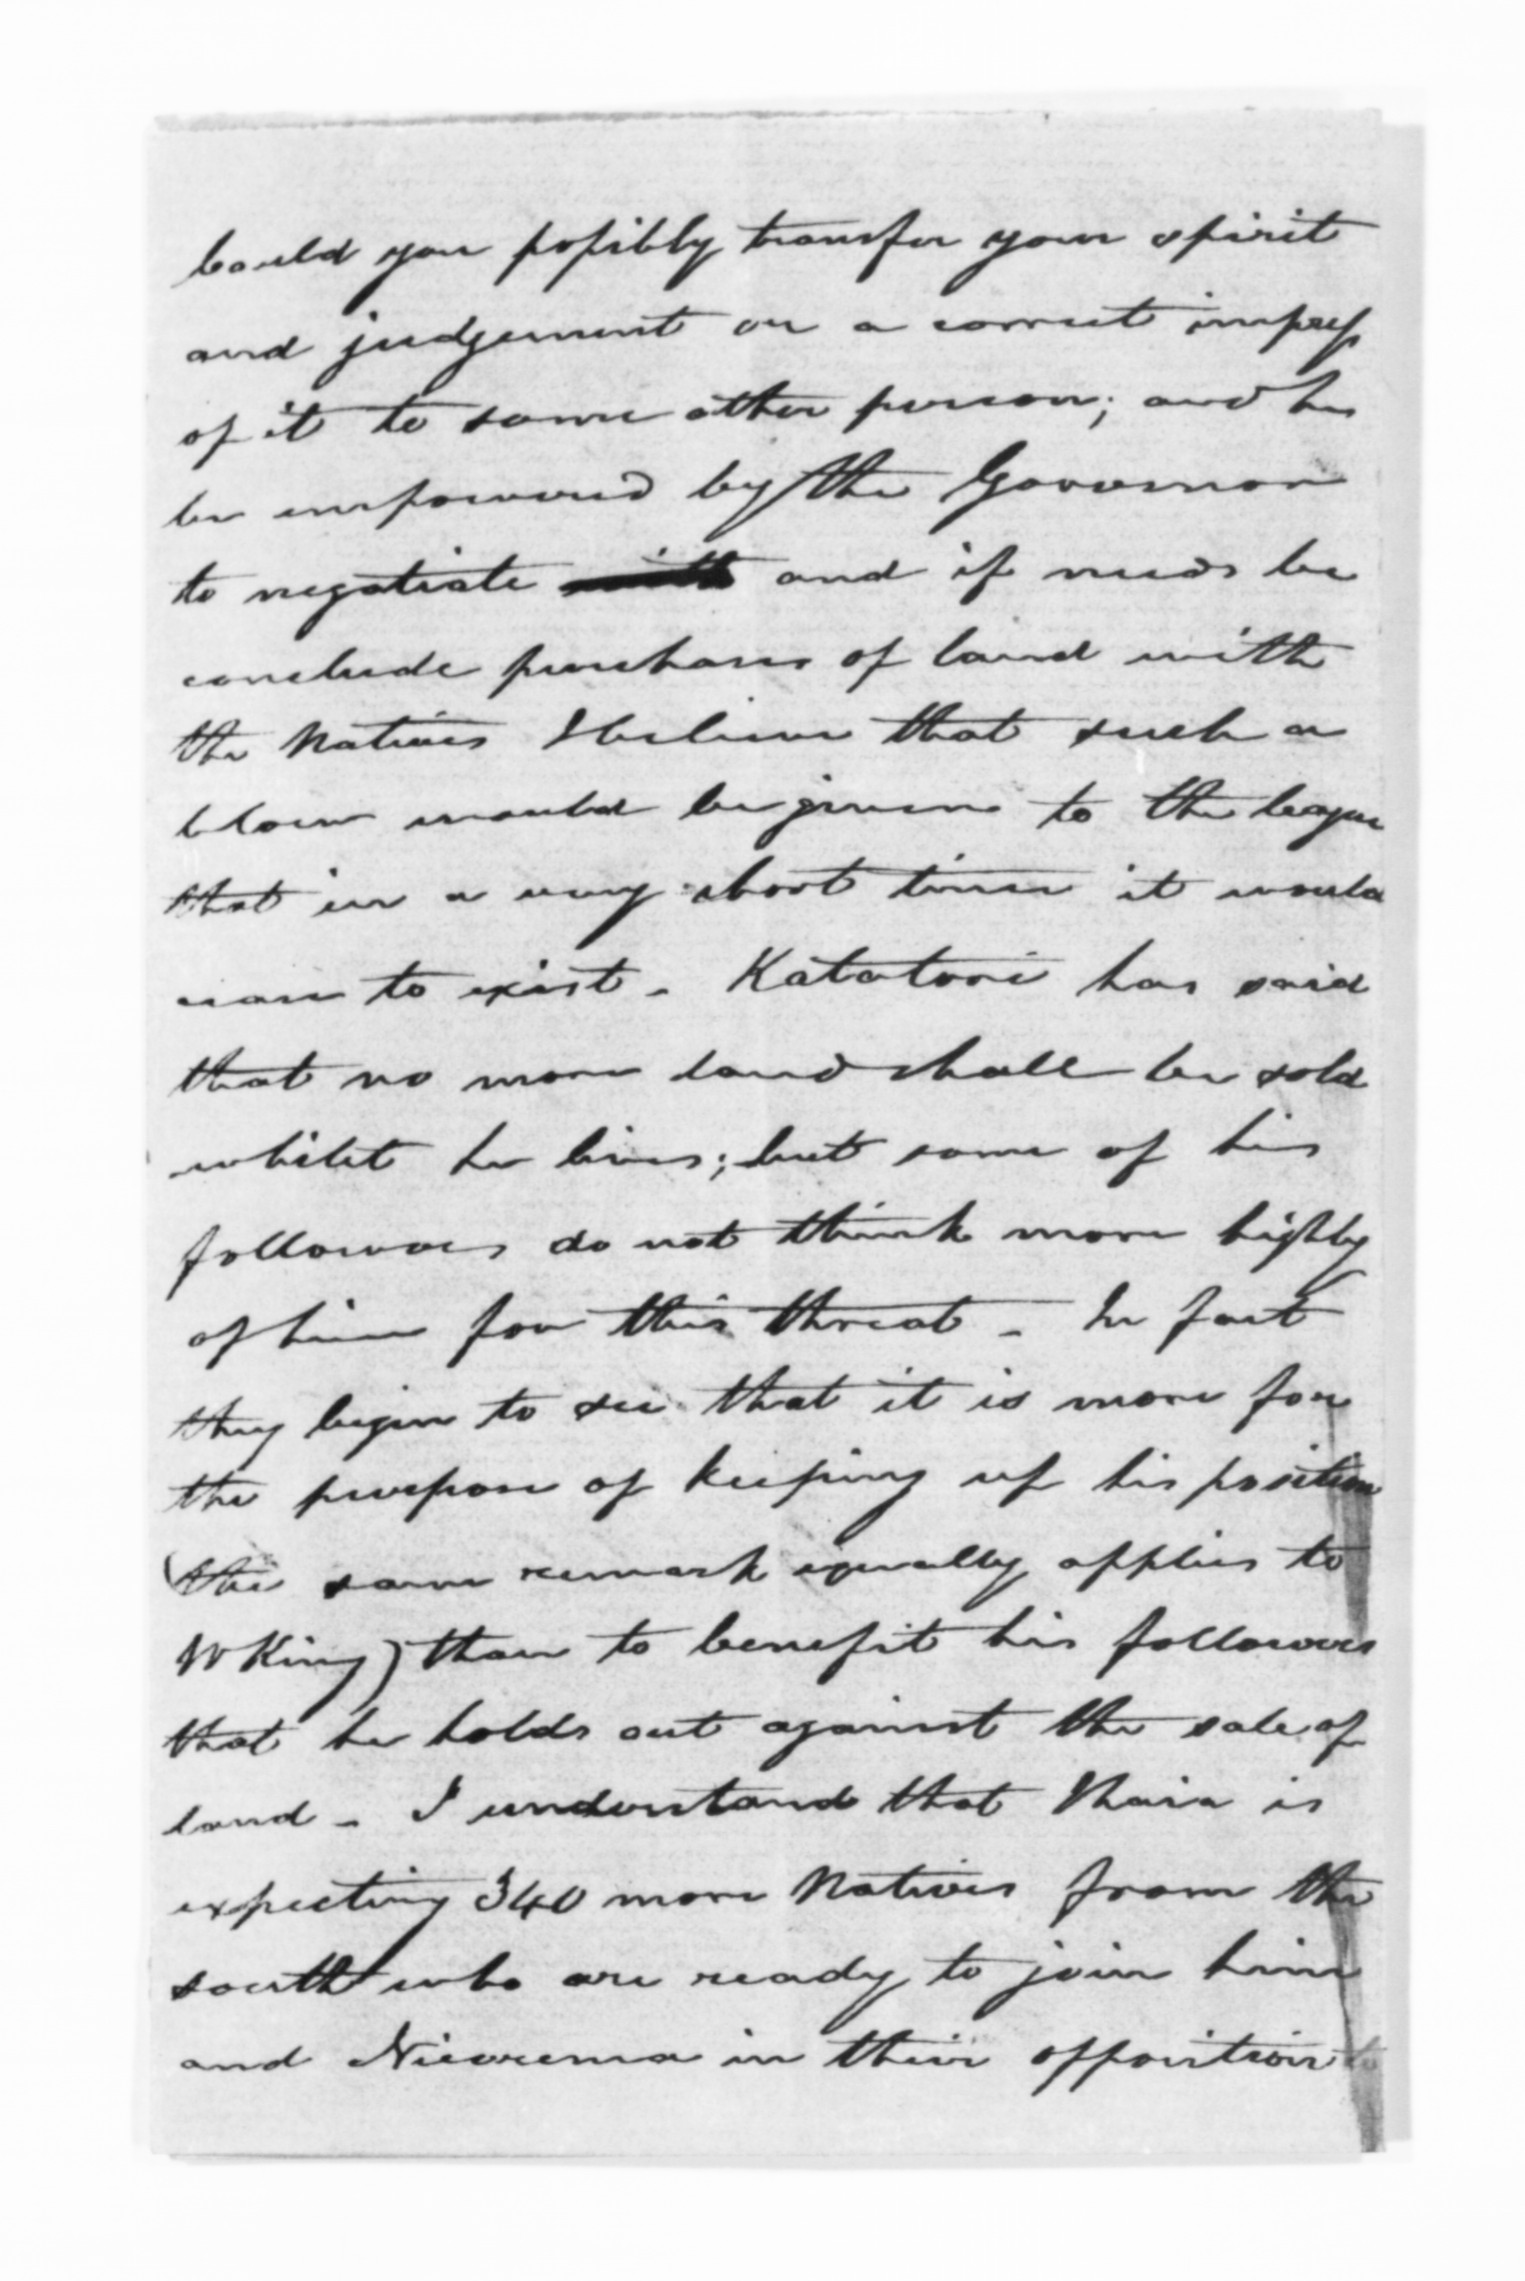 Could you possibly transfer your spirit
and judgement or a correct impress
of it to some other person; and he
be empowered by the Governor
to negotiate with and if needs be
conclude purchases of land with
the Natives I believe that such a
blow would be given to the league
that in a very short time it would
cease to exist - Katatore has said
that no more land shall be sold
whilst he lives; but some of his
followers do not think more highly
of him for this threat - In fact
they begin to see that it is more for
the purpose of keeping up his position
(the same remark equally applies to
W King) than to benefit his followers
that he holds out against the sale of
land - I understand that Ihaia is
expecting 340 more Natives from the
south who are ready to join him
and Nicorima in their opposition to